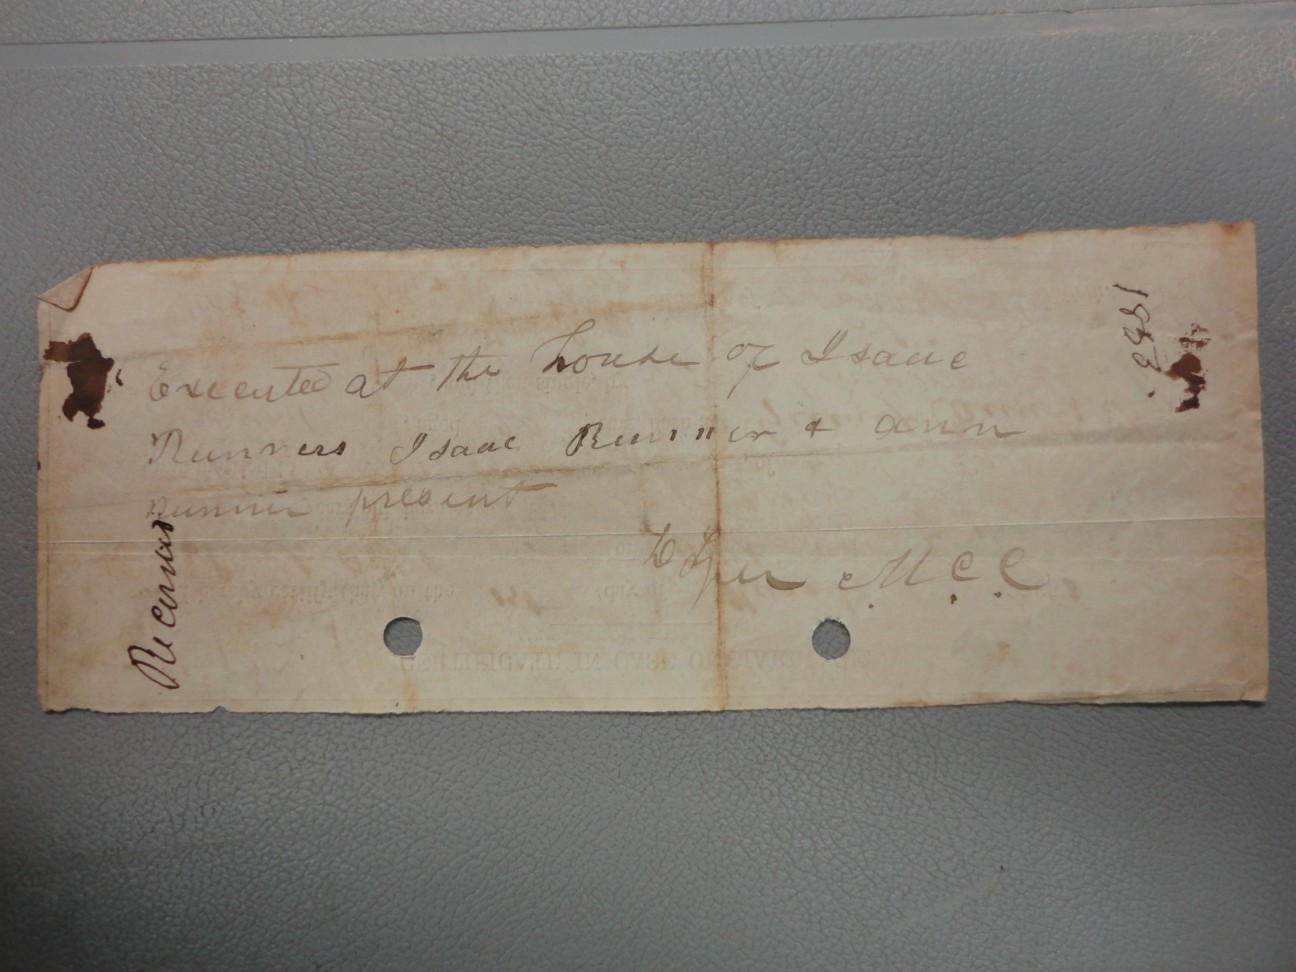 Executed at the house of Isaac
Runners Isaac Runner & Ann
runner present
M.C.C.
1883.